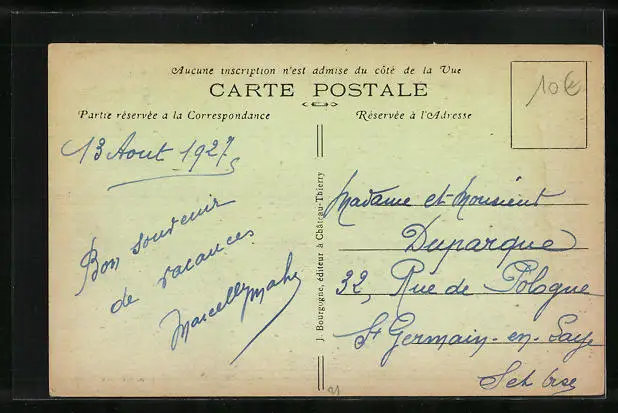 Aucune inscription n'est admise du côté de la Vue
CARTE POSTALE
Partie réservée a la Correspondance
Réservée à l'Adresse
10€
13 Aout 1927
Bon souvenir
de vacances
Marcelle
J. Bourgogne, éditeur à Château-Thierry
Madame et Monsieur
Duparque
32, Rue de Pologne
St Germain-en-Laye
Set Oise